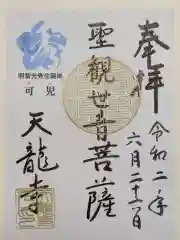 奉拝
令和二年
六月二十二日
聖観世音菩薩
可児
天龍寺